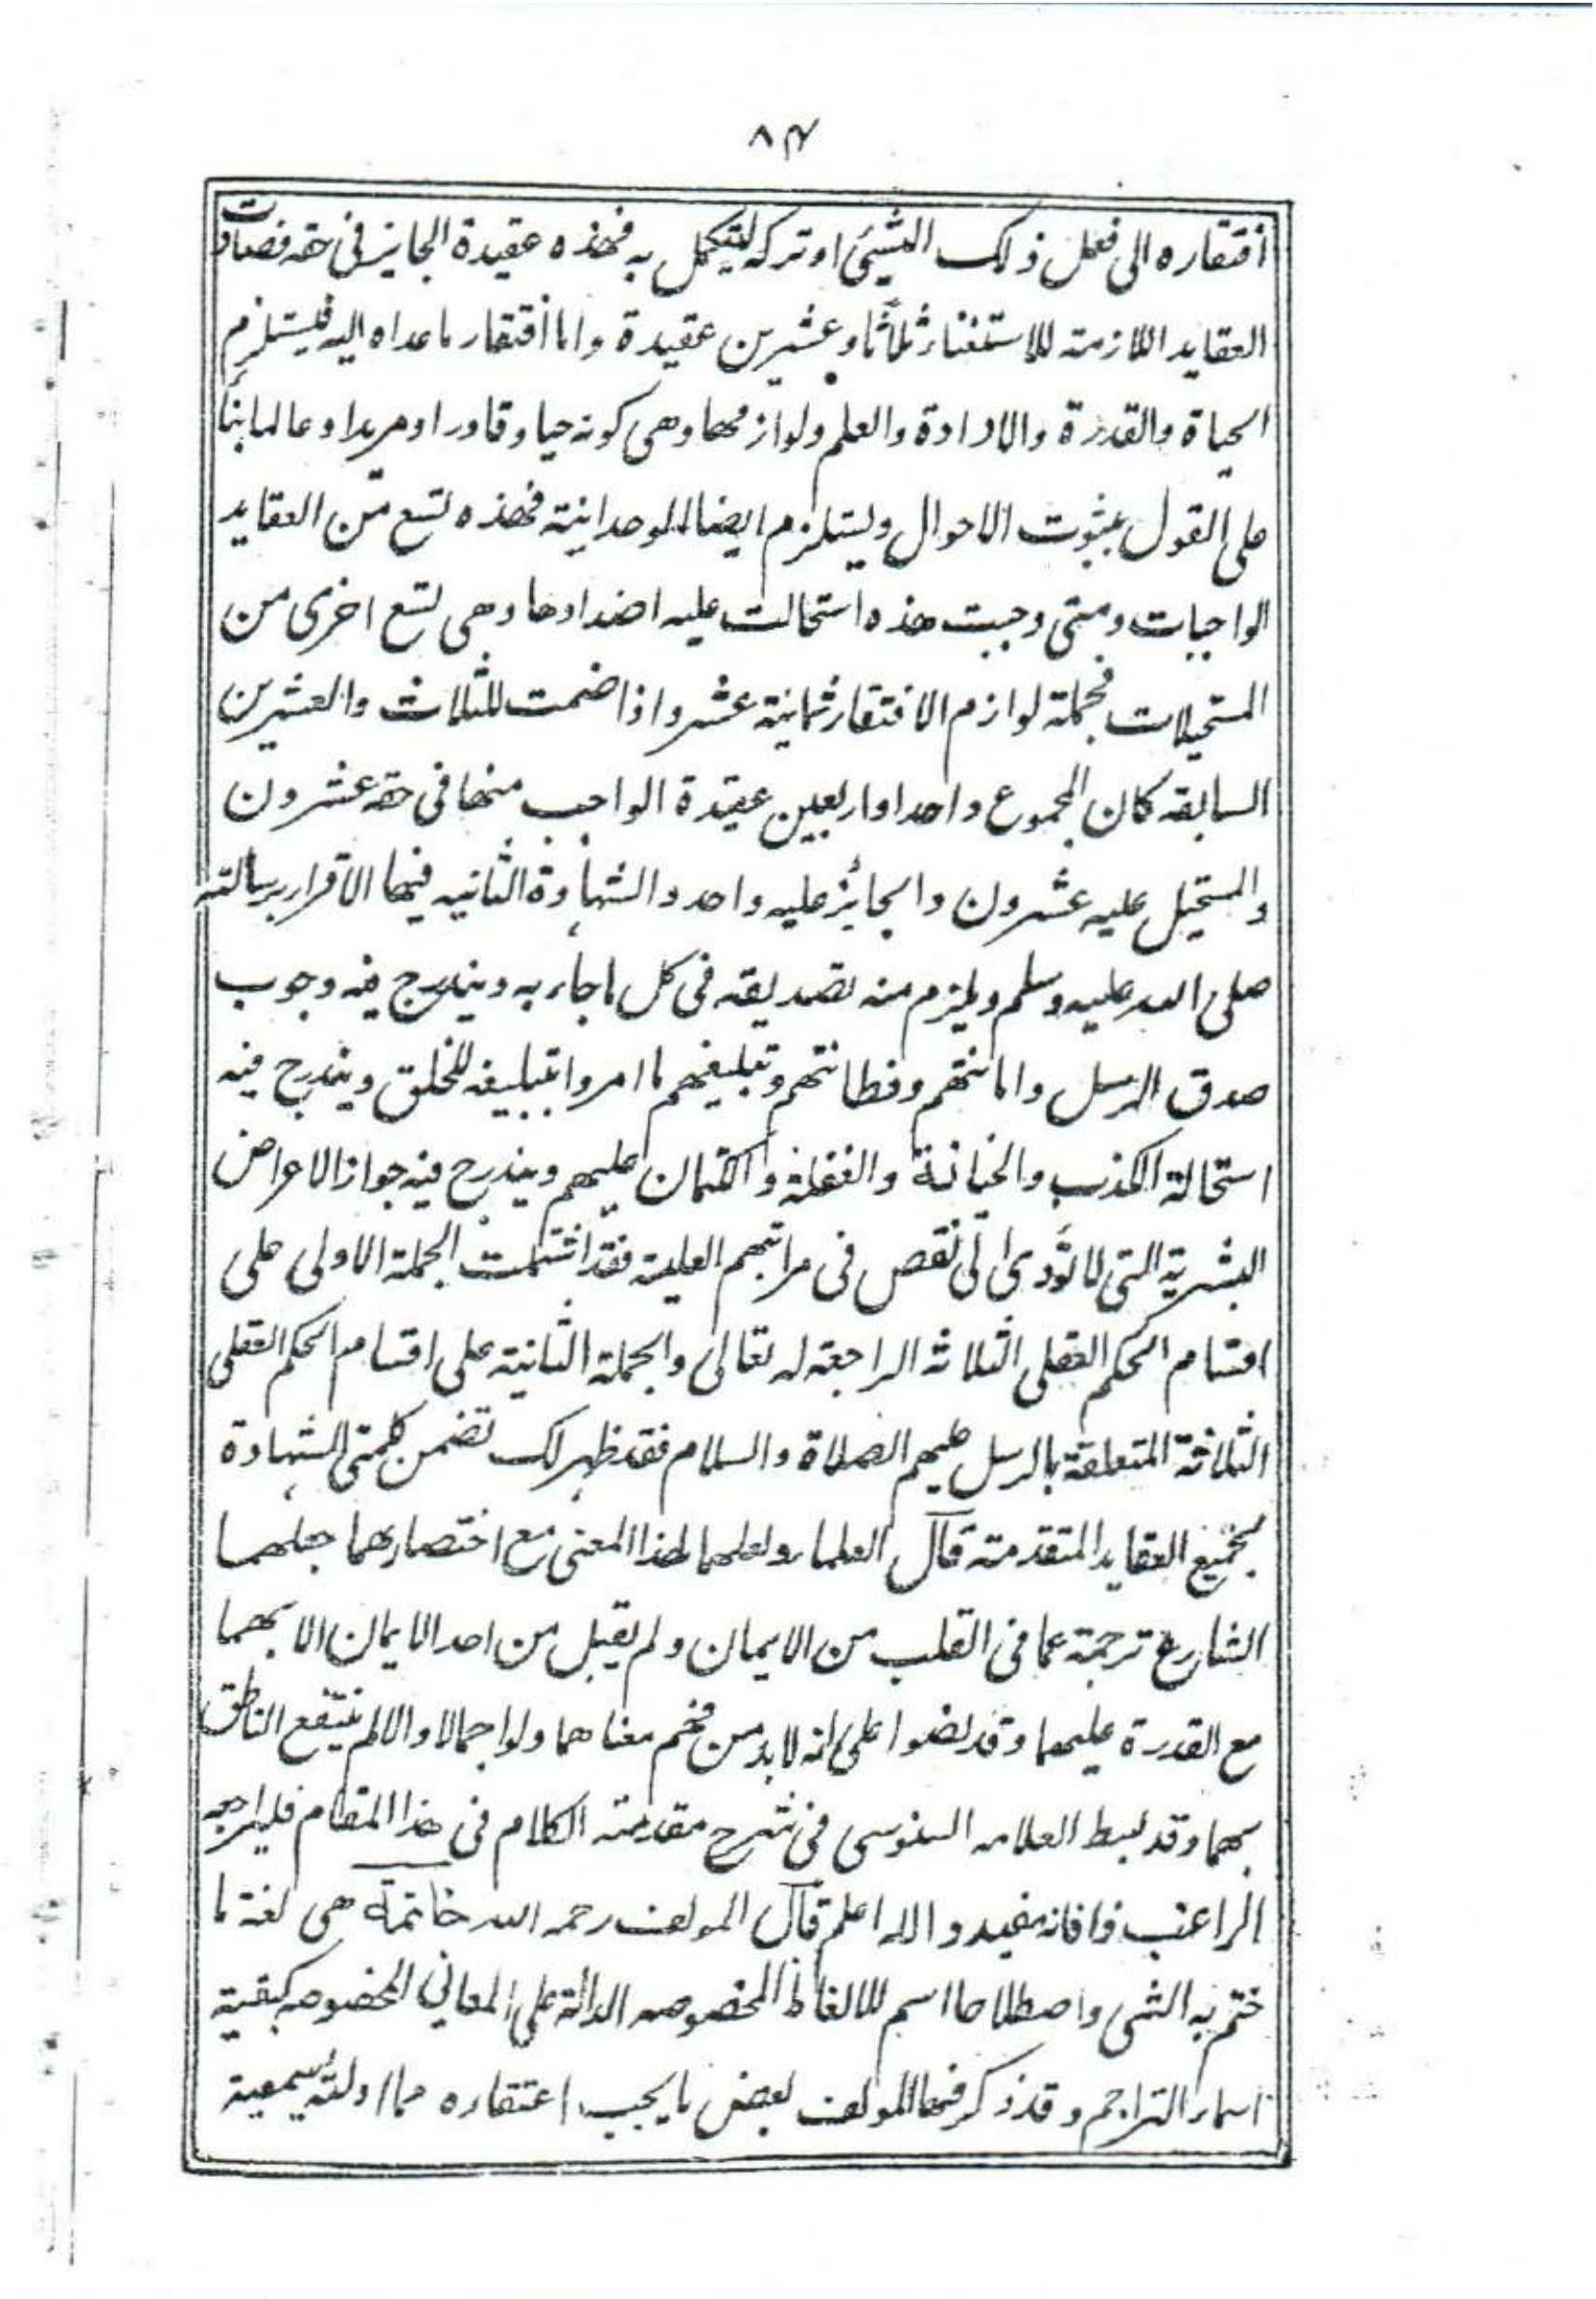 ٨٣
افتقاره الى فعل ذلك الشيئ او تركه ليتكمل به فهذه عقيدة الجايز فى حقه فصارت
العقايد اللازمة للاستغناء ثلاثا وعشرين عقيدة واما افتقار ماعداه اليه فيستلزم
الحياة والقدرة والارادة والعلم ولوازمها وهى كونه حيا وقادرا ومريدا وعالما بناً
على القول بثبوت الاحوال ويستلزم ايضا الوحدانية فهذه تسع من العقايد
الواجبات ومتى وجبت هذه استحالت عليه اضدادها وهى تسع اخرى من
المستحيلات فجملة لوازم الافتقار ثمانية عشر واذا ضمت للثلاث والعشرين
السابقه كان المجموع واحدا واربعين عقيدة الواجب منها فى حقه عشرون
والمستحيل عليه عشرون والجائز عليه واحد والشهادة الثانيه فيها الاقرار برسالته
صلى الله عليه وسلم ويلزم منه تصديقه فى كل ماجاء به ويندرج فيه وجوب
صدق الرسل وامانتهم وفطانتهم وتبليغهم ما امروا بتبليغه للخلق ويندرج فيه
استحالة الكذب والخيانة والغفلة والكتمان عليهم ويندرج فيه جواز الاعراض
البشرية التى لا تؤدى الى نقص فى مراتبهم العلية فقد اشتملت الجملة الاولى على
اقسام الحكم العقلى الثلاثه الراجعة له تعالى والجملة الثانية على اقسام الحكم العقلى
الثلاثة المتعلقة بالرسل عليهم الصلاة والسلام فقد ظهر لك تضمن كلمتى الشهادة
لجميع العقايد المتقدمة قال العلماء ولعلهما لهذا المعنى مع اختصارهما جعلهما
الشارع ترجمة عما فى القلب من الايمان ولم يقبل من احد الايمان الا بهما
مع القدرة عليهما وقد نصوا على انه لابد من فهم معناهما ولو اجمالا والا لم ينتفع الناطق
بهما وقد بسط العلامه السنوسى فى شرح مقدمته الكلام فى هذا المقام فليراجعه
الراغب فافانه مفيد والله اعلم قال المولف رحمه الله خاتمة هى لغة ما
ختم به الشى واصطلاحا اسم للالفاظ المخصوصه الدالة على المعاني المخصوصه كبقية
اسماء التراجم وقد ذكر فيها المولف بعض ما يجب اعتقاده مما ادلته سمعية